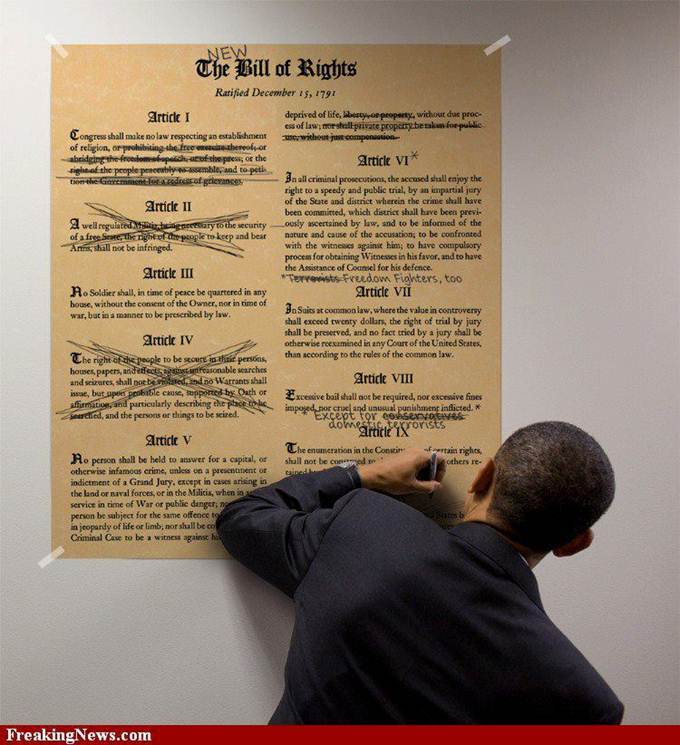 NEW
The Bill of Rights
Ratified December 15, 1791
Article I
Congress shall make no law respecting an establishment
of religion, or prohibiting the free exercise thereof; or
abridging the freedom of speech, or of the press; or the
right of the people peaceably to assemble, and to peti-
tion the Government for a redress of grievances.
Article II
A well regulated Militia, being necessary to the security
of a free State, the right of the people to keep and bear
Arms, shall not be infringed.
Article III
No Soldier shall, in time of peace be quartered in any
house, without the consent of the Owner, nor in time of
war, but in a manner to be prescribed by law.
Article IV
The right of the people to be secure in their persons,
houses, papers, and effects, against unreasonable searches
and seizures, shall not be violated, and no Warrants shall
issue, but upon probable cause, supported by Oath or
affirmation, and particularly describing the place to be
searched, and the persons or things to be seized.
Article V
No person shall be held to answer for a capital, or
otherwise infamous crime, unless on a presentment or
indictment of a Grand Jury, except in cases arising in
the land or naval forces, or in the Militia, when in
service in time of War or public danger;
person be subject for the same offence to
in jeopardy of life or limb; nor shall be
Criminal Case to be a witness against
deprived of life, liberty, or property, without due proc-
ess of law; nor shall private property be taken for public
use, without just compensation.
Article VI*
In all criminal prosecutions, the accused shall enjoy the
right to a speedy and public trial, by an impartial jury
of the State and district wherein the crime shall have
been committed, which district shall have been previ-
ously ascertained by law, and to be informed of the
nature and cause of the accusation; to be confronted
with the witnesses against him; to have compulsory
process for obtaining Witnesses in his favor, and to have
the Assistance of Counsel for his defence.
*Terrorists Freedom Fighters, too
Article VII
In Suits at common law, where the value in controversy
shall exceed twenty dollars, the right of trial by jury
shall be preserved, and no fact tried by a jury shall be
otherwise reexamined in any Court of the United States,
than according to the rules of the common law.
Article VIII
Excessive bail shall not be required, nor excessive fines
imposed, nor cruel and unusual punishment inflicted. *
* Except for conservatives
domestic terrorists
Article IX
The enumeration in the of certain rights,
shall not be others re-
tained
FreakingNews.com